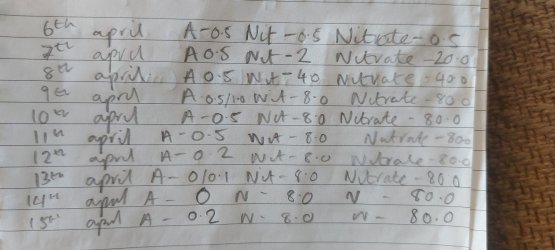 6th april A-0.5 Nit-0.5 Nitrate-0.5
7th april A 0.5 Nit-2 Nitrate-20.0
8th april A 0.5 Nit-4.0 Nitrate-40.0
9th april A 0.5/1.0 Nit-8.0 Nitrate-80.0
10th april A-0.5 Nit-8.0 Nitrate-80.0
11th april A-0.5 Nit-8.0 Nitrate-80.0
12th april A-0.2 Nit-8.0 Nitrate-80.0
13th april A-0/0.1 Nit-8.0 Nitrate-80.0
14th april A-0 N-8.0 N-80.0
15th april A-0.2 N-8.0 N-80.0